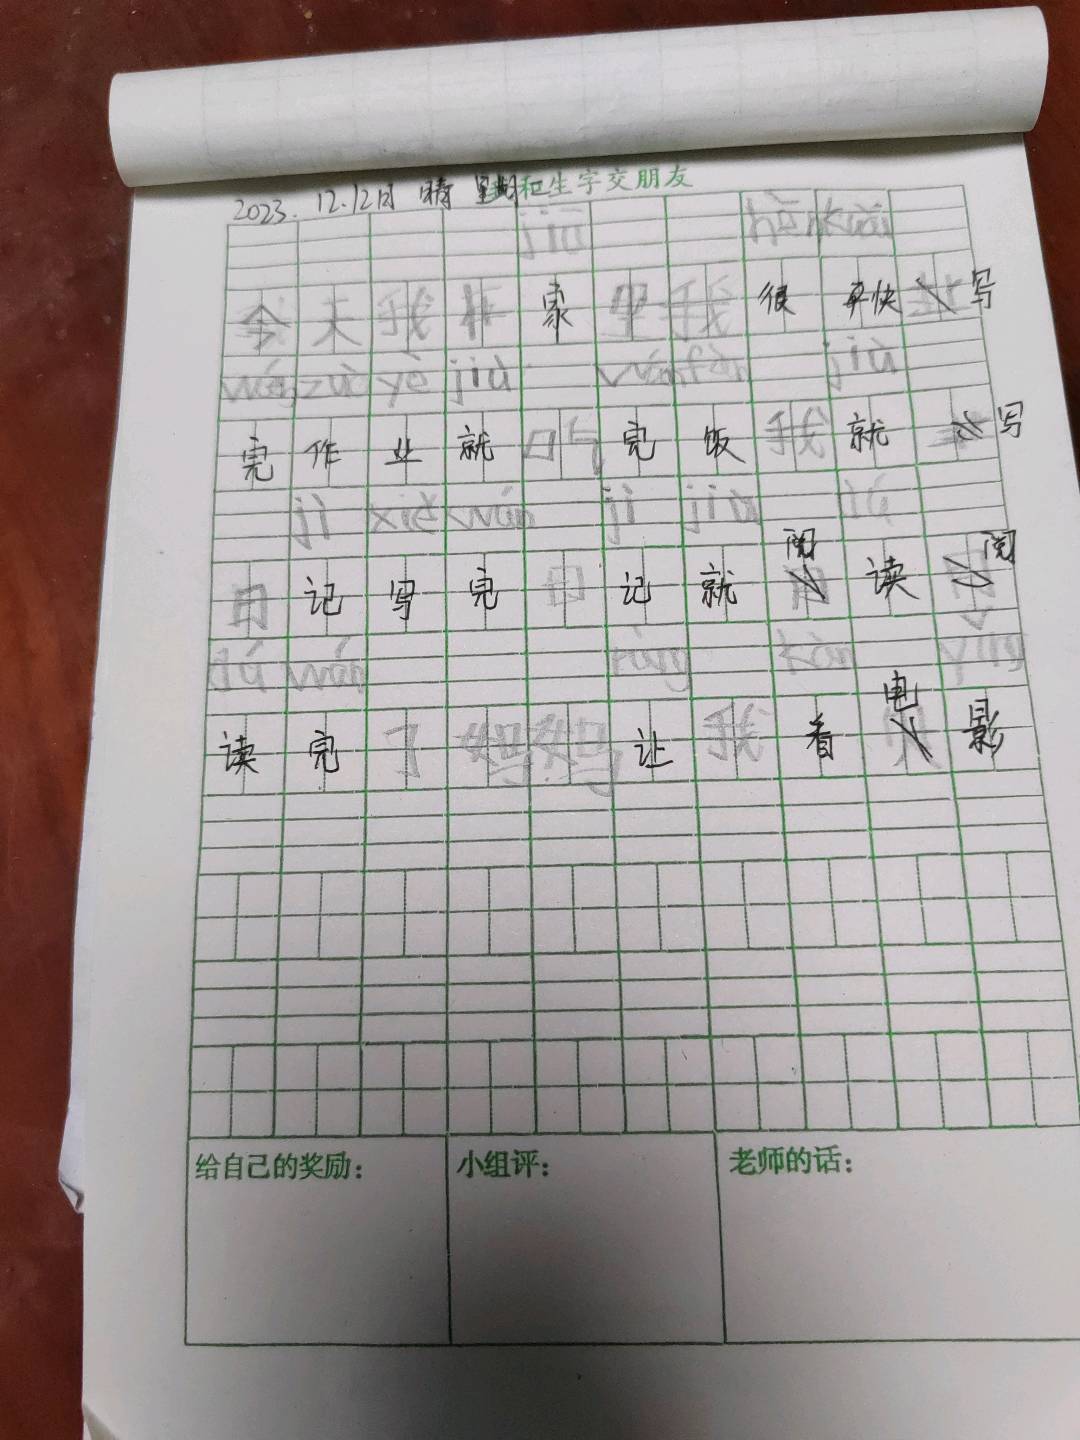 2023.12.12日 晴 星期 和生字交朋友
jiū hěn kuài
今天我在家里我很快写
wán zuò yè jiù wán fàn jiù
完作业就吃完饭我就写
jì xiě wán jì jiù dú
日记写完日记就阅读阅
dú wán ràng kàn yǐng
读完了妈妈让我看电影
给自己的奖励: 小组评: 老师的话: